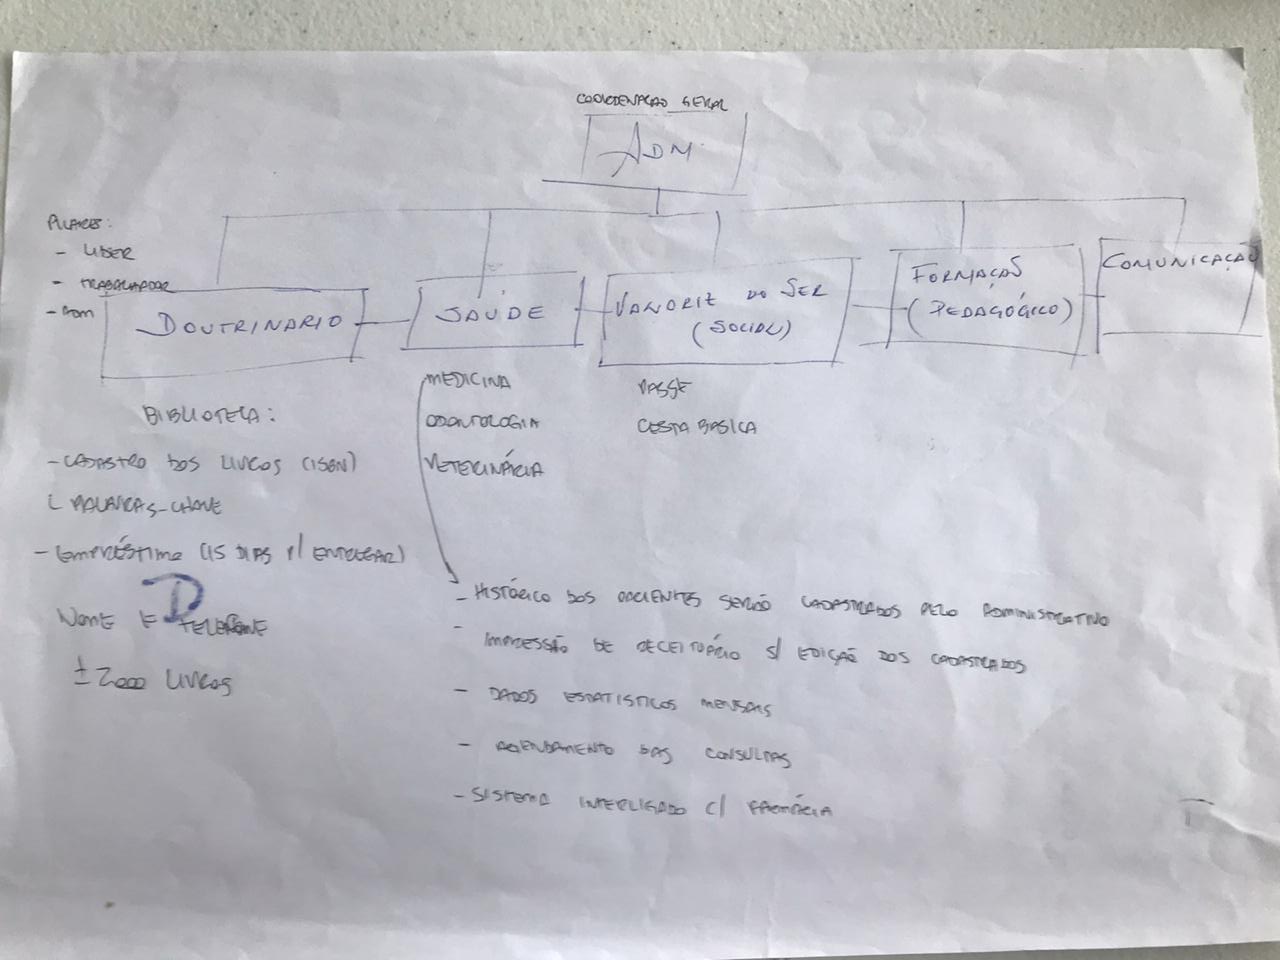 COORDENAÇÃO GERAL
ADM.
PILARES:
- LIDER
- TRABALHADOR
- DOM
DOUTRINARIO
SAÚDE
VALORIZ DO SER
(SOCIAL)
FORMAÇÃO
(PEDAGÓGICO)
COMUNICAÇAO
BIBLIOTECA:
- CADASTRO DOS LIVROS (ISBN)
L PALAVRAS-CHAVE
- EMPRÉSTIMO (15 DIAS P/ ENTREGAR)
D
NOME E TELEFONE
± 2000 LIVROS
MEDICINA
ODONTOLOGIA
VETERINÁRIA
PASSE
CESTA BASICA
- HISTÓRICO DOS PACIENTES SERÃO CADASTRADOS PELO ADMINISTRATIVO
- IMPRESSÃO DE RECEITUÁRIO S/ EDIÇÃO DOS CADASTRADOS
- DADOS ESTATISTICOS MENSAIS
- AGENDAMENTO DAS CONSULTAS
- SISTEMA INTERLIGADO C/ FARMÁCIA